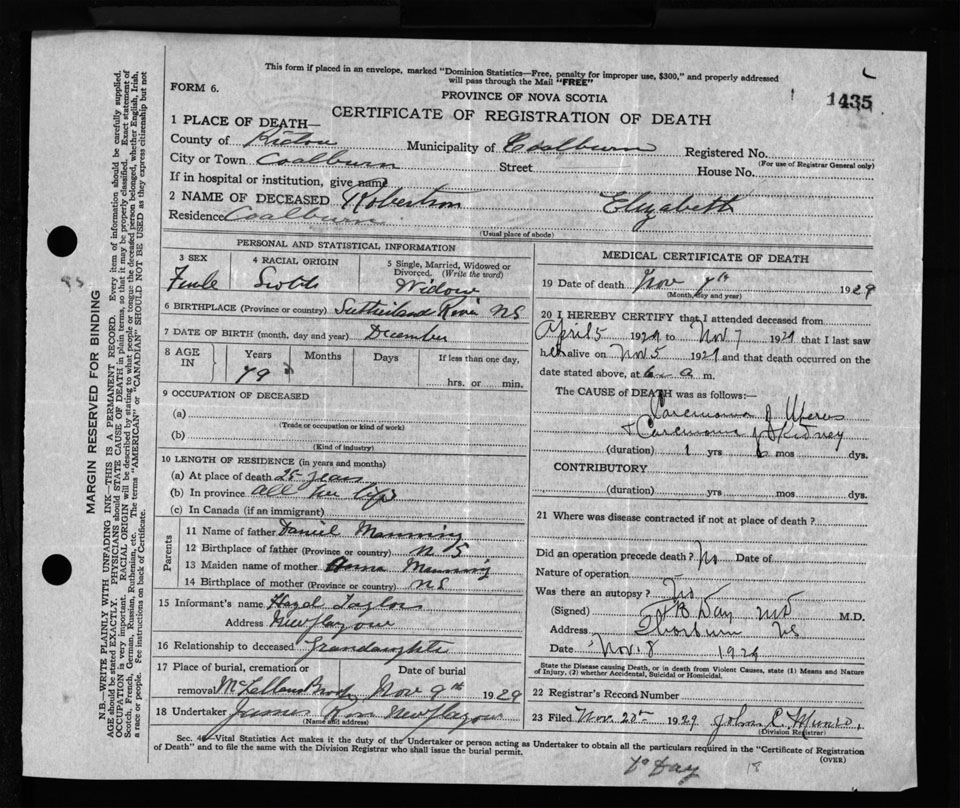 This form if placed in an envelope, marked "Dominion Statistics—Free, penalty for improper use, $300," and properly addressed
will pass through the Mail "FREE"
FORM 6.
PROVINCE OF NOVA SCOTIA
1435
CERTIFICATE OF REGISTRATION OF DEATH
1 PLACE OF DEATH—
County of Pictou Municipality of Coalburn Registered No.
(For use of Registrar General only)
City or Town Coalburn Street House No.
If in hospital or institution, give name
2 NAME OF DECEASED Robertson Elizabeth
Residence Coalburn
(Usual place of abode)
PERSONAL AND STATISTICAL INFORMATION
3 SEX 4 RACIAL ORIGIN 5 Single, Married, Widowed or
Divorced. (Write the word)
Female Scotch Widow
6 BIRTHPLACE (Province or country) Sutherland River NS
7 DATE OF BIRTH (month, day and year) December
8 AGE IN Years Months Days If less than one day,
79 hrs. or min.
9 OCCUPATION OF DECEASED
(a)
(Trade or occupation or kind of work)
(b)
(Kind of industry)
10 LENGTH OF RESIDENCE (in years and months)
(a) At place of death 25 years
(b) In province All her life
(c) In Canada (if an immigrant)
Parents
11 Name of father Daniel Manning
12 Birthplace of father (Province or country) N S
13 Maiden name of mother Manning
14 Birthplace of mother (Province or country) NS
15 Informant's name Hazel Taylor
Address New Glasgow
16 Relationship to deceased Grandaughter
17 Place of burial, cremation or Date of burial
removal McLellans Brook Nov 9th 1929
18 Undertaker James New Glasgow
(Name and address)
MEDICAL CERTIFICATE OF DEATH
19 Date of death Nov 7th 1929
(Month, day and year)
20 I HEREBY CERTIFY that I attended deceased from
April 5 1929 to Nov 7 1929 that I last saw
her alive on Nov 5 1929 and that death occurred on
date stated above, at 6 a m.
The CAUSE OF DEATH was as follows:—
Carcinoma of Uterus
& Carcinoma of Kidney
(duration) 1 yrs 6 mos dys.
CONTRIBUTORY
(duration) yrs mos dys.
21 Where was disease contracted if not at place of death?
Did an operation precede death? No Date of
Nature of operation
Was there an autopsy? No
(Signed) Day MD M.D.
Address Thorburn NS
Date Nov. 8 192
State the Disease causing Death, or in death from Violent Causes, state (1) Means and Nature
of Injury, (2) whether Accidental, Suicidal or Homicidal.
22 Registrar's Record Number
23 Filed Nov. 20th 1929 John Munro,
(Division Registrar)
Sec. 4—Vital Statistics Act makes it the duty of the Undertaker or person acting as Undertaker to obtain all the particulars required in the "Certificate of Registration
of Death" and to file the same with the Division Registrar who shall issue the burial permit.
(OVER)
Day 18
MARGIN RESERVED FOR BINDING
N.B.—WRITE PLAINLY WITH UNFADING INK—THIS IS A PERMANENT RECORD. Every item of information should be carefully supplied.
AGE should be stated EXACTLY. PHYSICIANS should STATE CAUSE OF DEATH in plain terms, so that it may be properly classified. Exact statement of
OCCUPATION is very important. RACIAL ORIGIN will be described by stating to what people or tongue the deceased person belonged, whether English, Irish,
Scotch, French, German, Russian, Ruthenian, etc. The terms "AMERICAN" or "CANADIAN" SHOULD NOT BE USED as they express citizenship but not
a race or people. See instructions on back of Certificate.